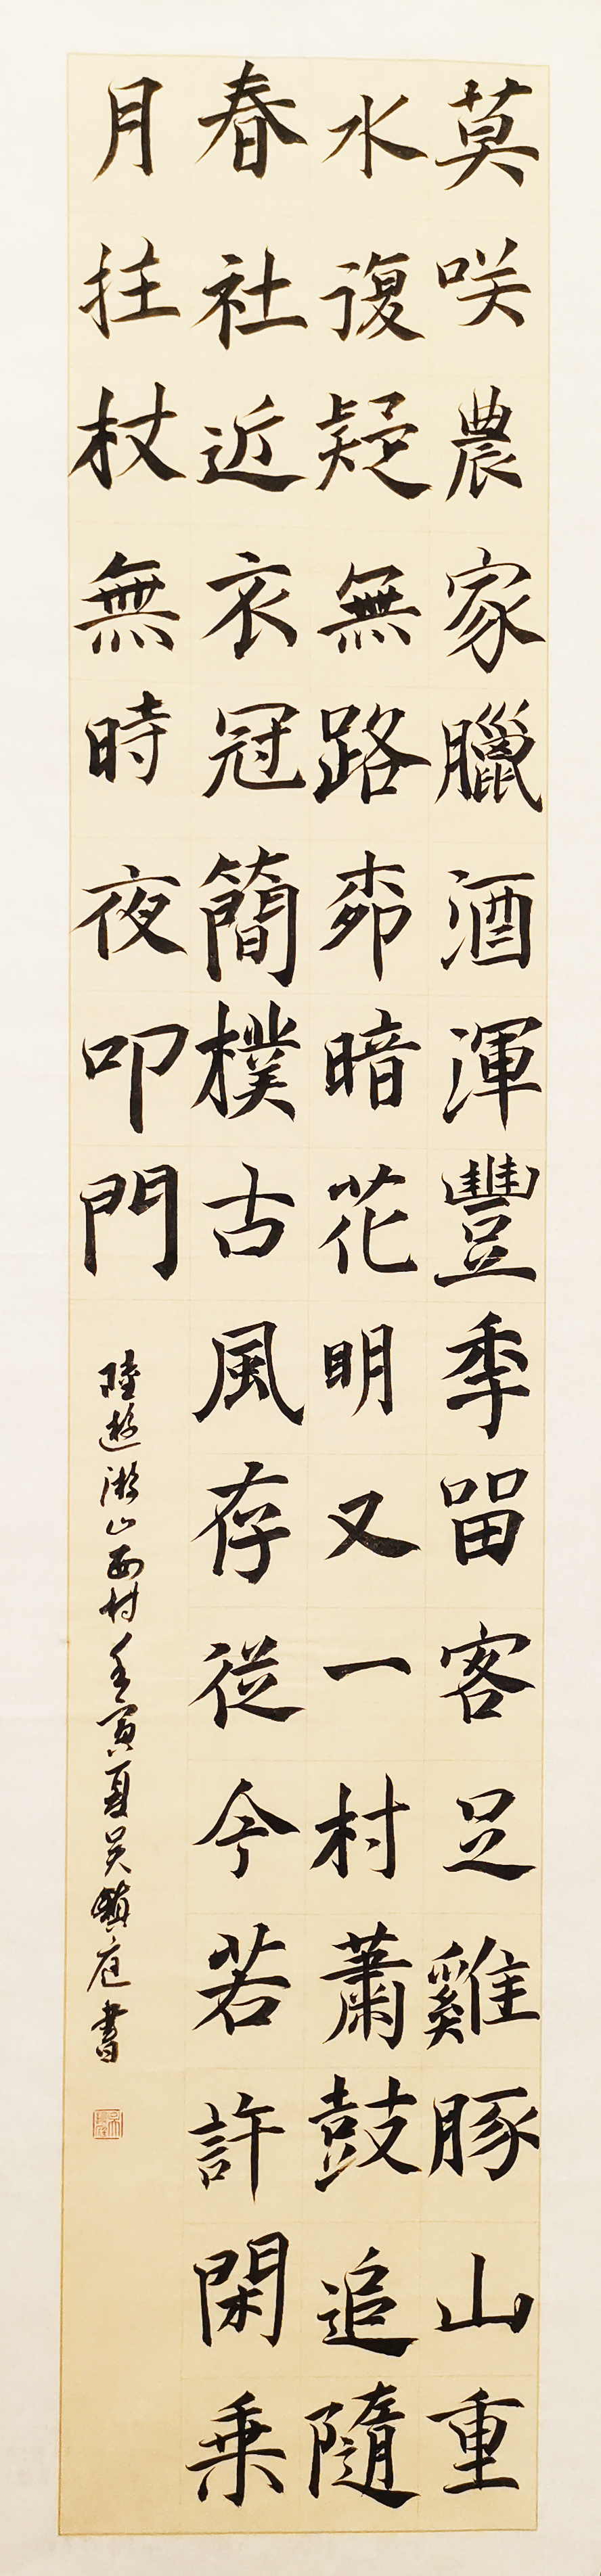 莫咲農家臘酒渾豐秊留客足雞豚山重
水復疑無路桺暗花明又一村蕭鼓追隨
春社近衣冠簡樸古風存従今若許閑乗
月拄杖無時夜叩門
陸遊游山西村壬寅夏吴鎮庭書